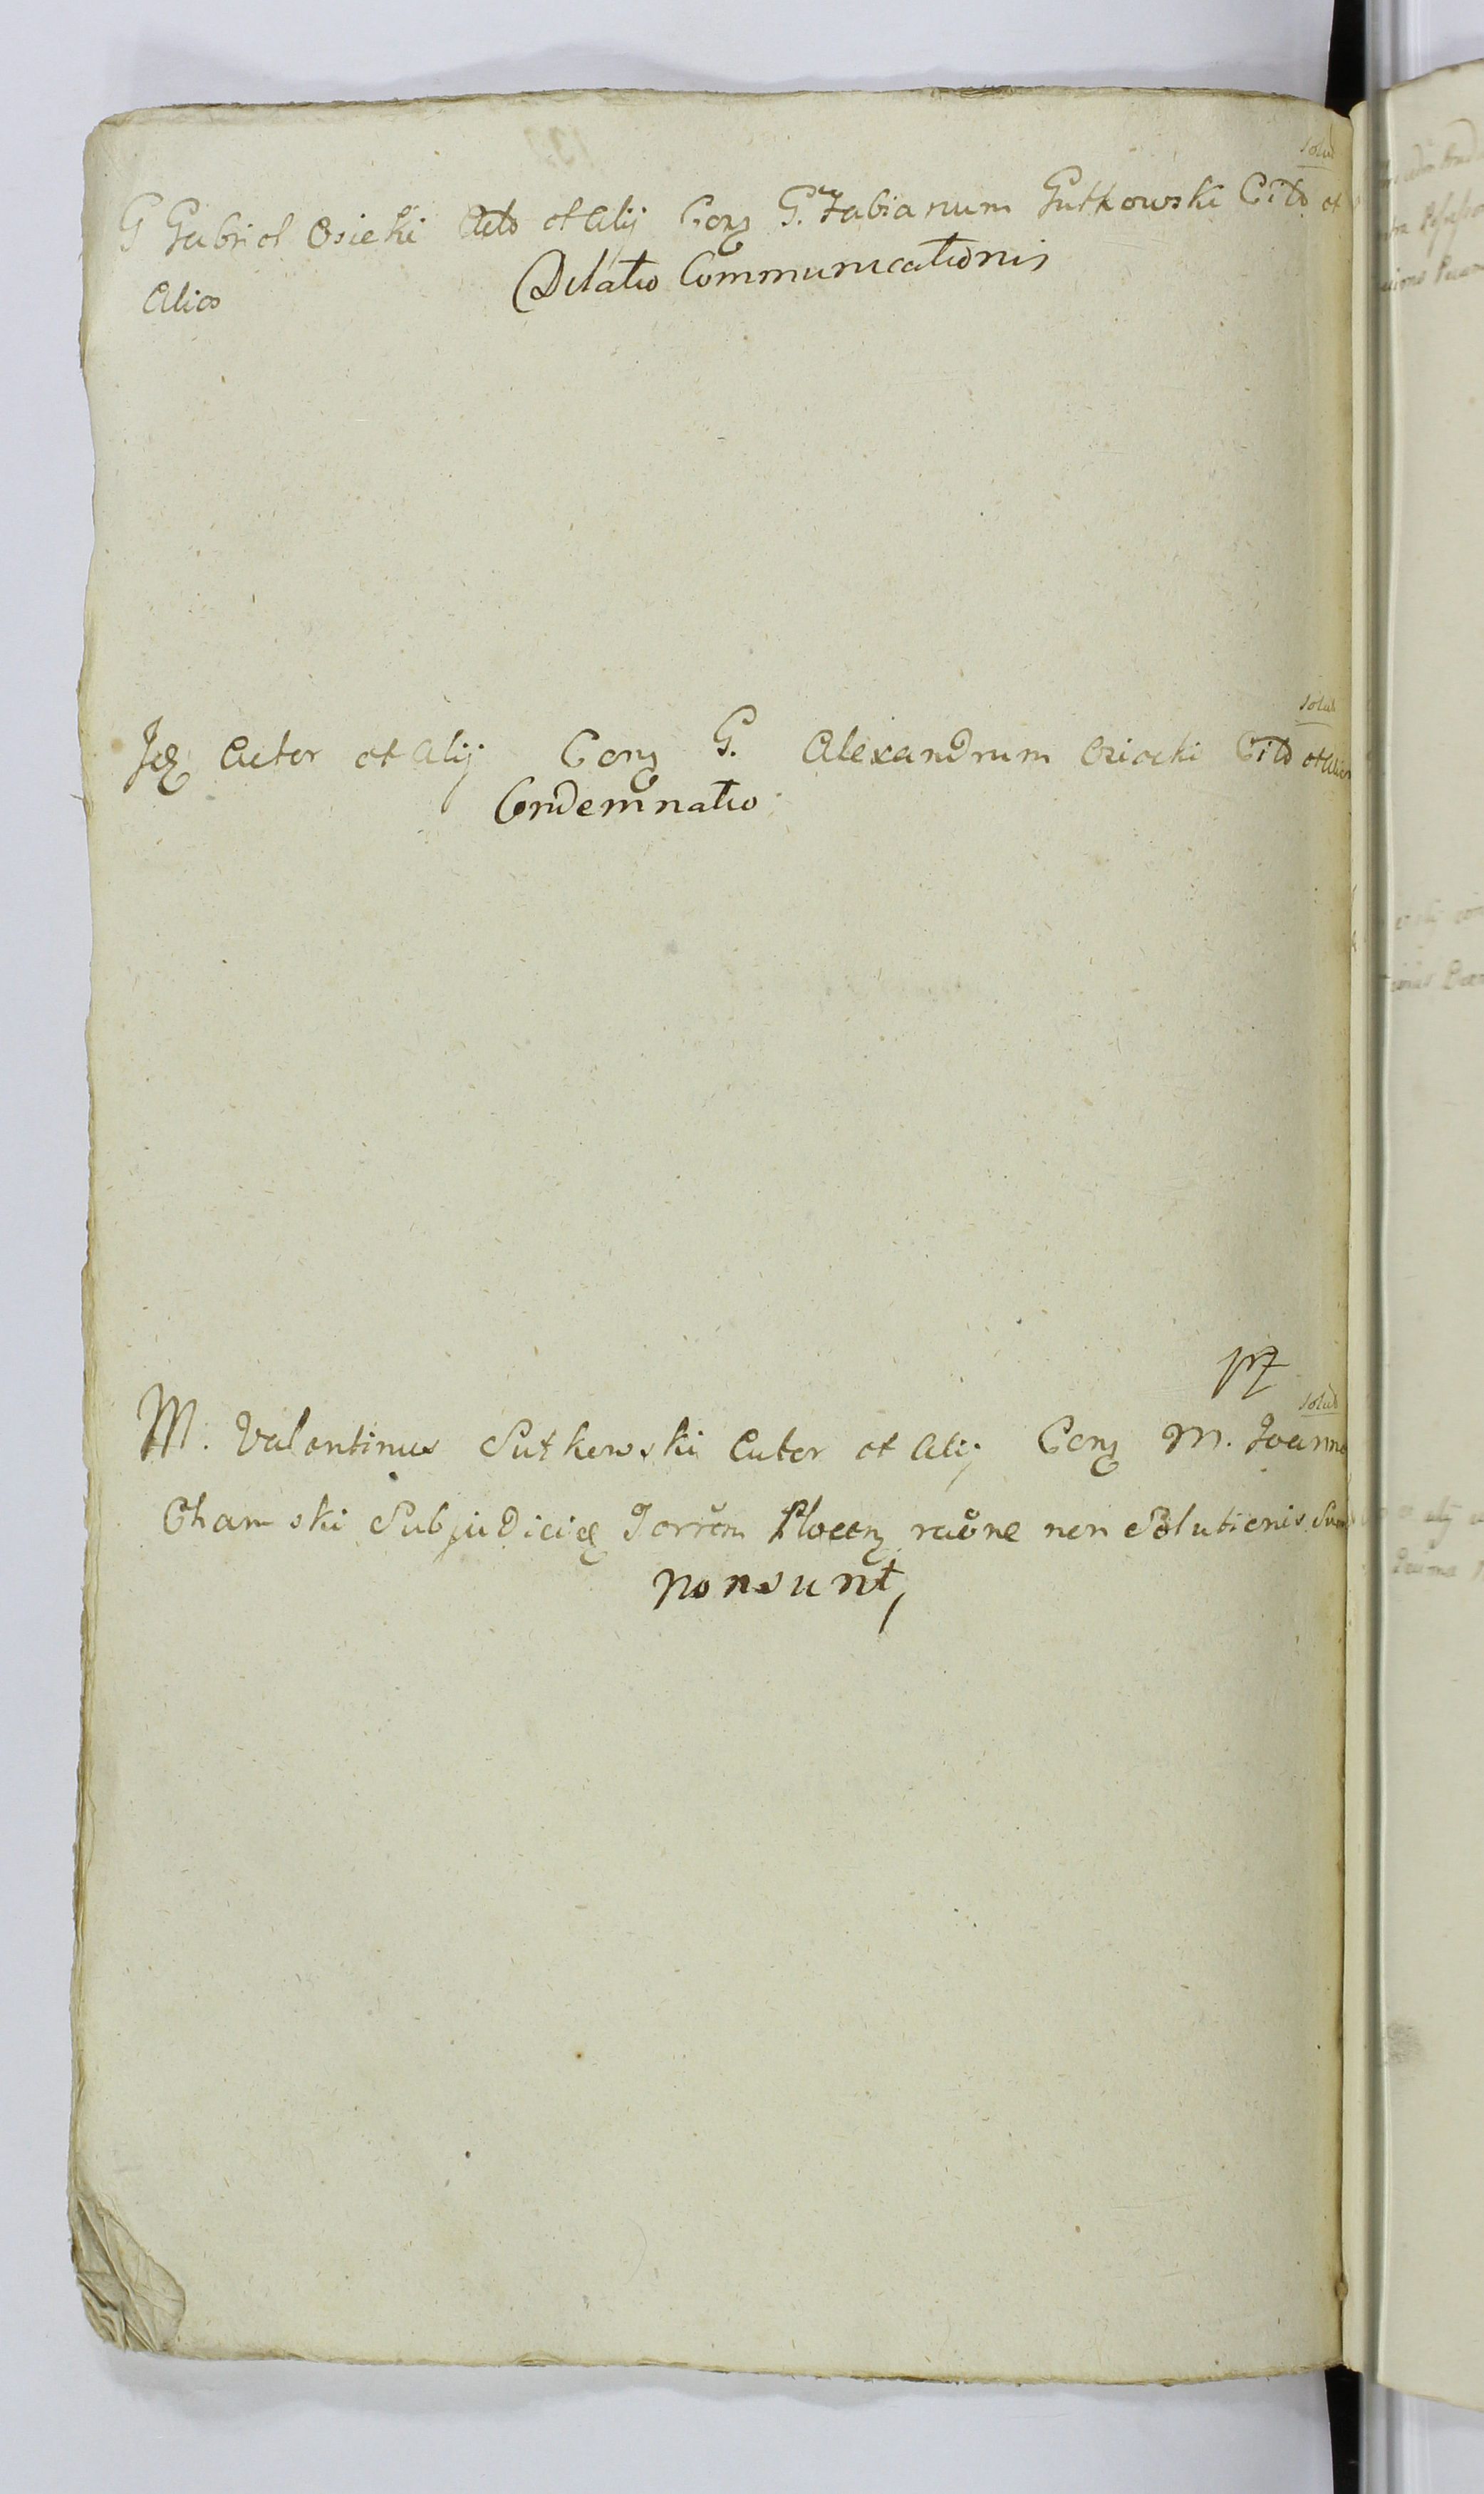 Solut
G Gabriel Osiecki Acto et Alij Conq G. Fabianum Gutkowski Citd et
Alios
Dilatio Communicationis
Solut
Idq Actor et Alij Conq G. Alexandrum Osiecki Citd et Alios
Condemnatio
Solut
M. Valentinus Sutkowski Actor et Alij Conq M. Joanne
Chamski Subjudicię Terrem Plocen raone non Solutionis Sum
nonsunt